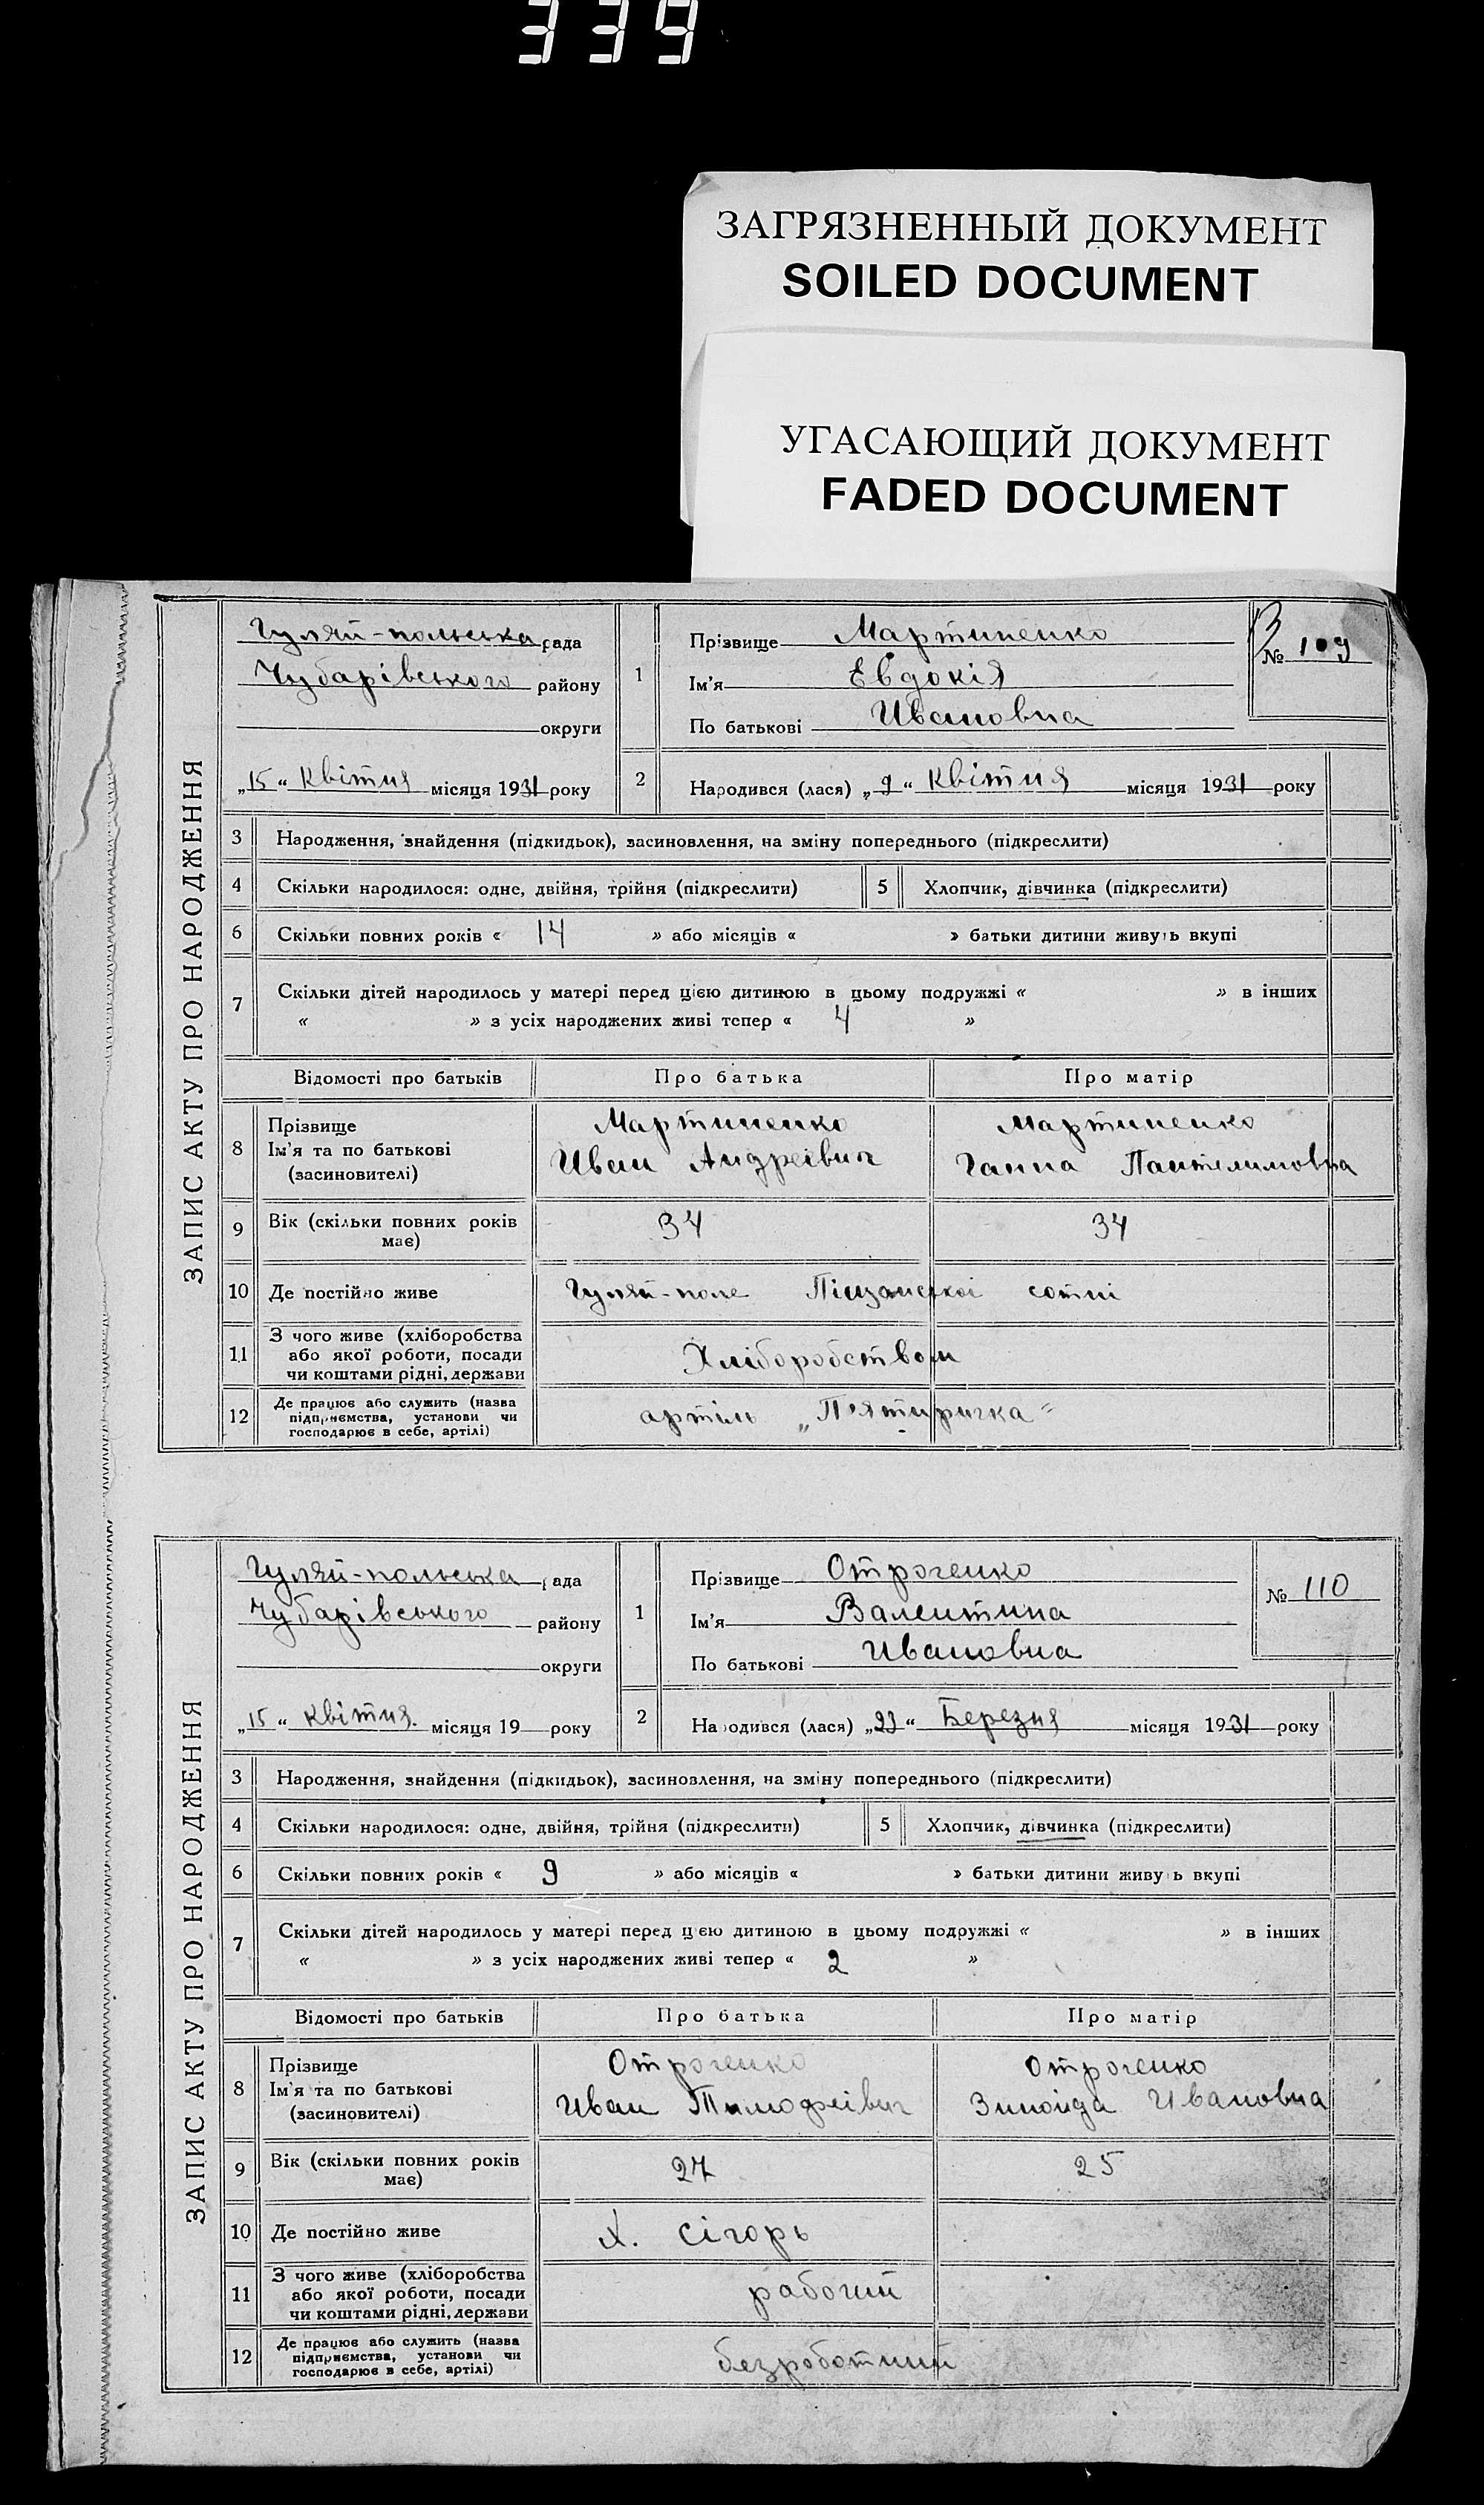 339
ЗАГРЯЗНЕННЫЙ ДОКУМЕНТ
SOILED DOCUMENT
УГАСАЮЩИЙ ДОКУМЕНТ
FADED DOCUMENT
ЗАПИС АКТУ ПРО НАРОДЖЕННЯ
Гуляй-польська рада
Чубарівського району
округи
„15“ Квітня місяця 1931 року
1
Прізвище Мартиненко
Ім'я Евдокія
По батькові Ивановна
№ 109
2
Народився (лася) „9“ Квітня місяця 1931 року
3 Народження, знайдення (підкидьок), засиновлення, на зміну попереднього (підкреслити)
4 Скільки народилося: одне, двійня, трійня (підкреслити) 5 Хлопчик, дівчинка (підкреслити)
6 Скільки повних років « 14 » або місяців « » батьки дитини живуть вкупі
7 Скільки дітей народилось у матері перед цією дитиною в цьому подружжі « » в інших
« » з усіх народжених живі тепер « 4 »
Відомості про батьків Про батька Про матір
8 Прізвище
Ім'я та по батькові
(засиновителі)
Мартиненко
Иван Андреівич
Мартиненко
Ганна Пантелимовна
9 Вік (скільки повних років
має)
34 34
10 Де постійно живе Гуляй-поле Піщанскої сотні
11 З чого живе (хліборобства
або якої роботи, посади
чи коштами рідні, держави
Хліборобством
12 Де працює або служить (назва
підприємства, установи чи
господарює в себе, артілі)
артіль „П'ятиричка“
ЗАПИС АКТУ ПРО НАРОДЖЕННЯ
Гуляй-польська рада
Чубарівського району
округи
„15“ Квітня. місяця 19 року
1
Прізвище Отроченко
Ім'я Валентина
По батькові Ивановна
№ 110
2
Народився (лася) „23“ Березня місяця 1931 року
3 Народження, знайдення (підкидьок), засиновлення, на зміну попереднього (підкреслити)
4 Скільки народилося: одне, двійня, трійня (підкреслити) 5 Хлопчик, дівчинка (підкреслити)
6 Скільки повних років « 9 » або місяців « » батьки дитини живуть вкупі
7 Скільки дітей народилось у матері перед цією дитиною в цьому подружжі « » в інших
« » з усіх народжених живі тепер « 2 »
Відомості про батьків Про батька Про матір
8 Прізвище
Ім'я та по батькові
(засиновителі)
Отроченко
Иван Тимофеівич
Отроченко
Зиноіда Ивановна
9 Вік (скільки повних років
має)
27 25
10 Де постійно живе х. Сігорь
11 З чого живе (хліборобства
або якої роботи, посади
чи коштами рідні, держави
рабочий
12 Де працює або служить (назва
підприємства, установи чи
господарює в себе, артілі)
безработний